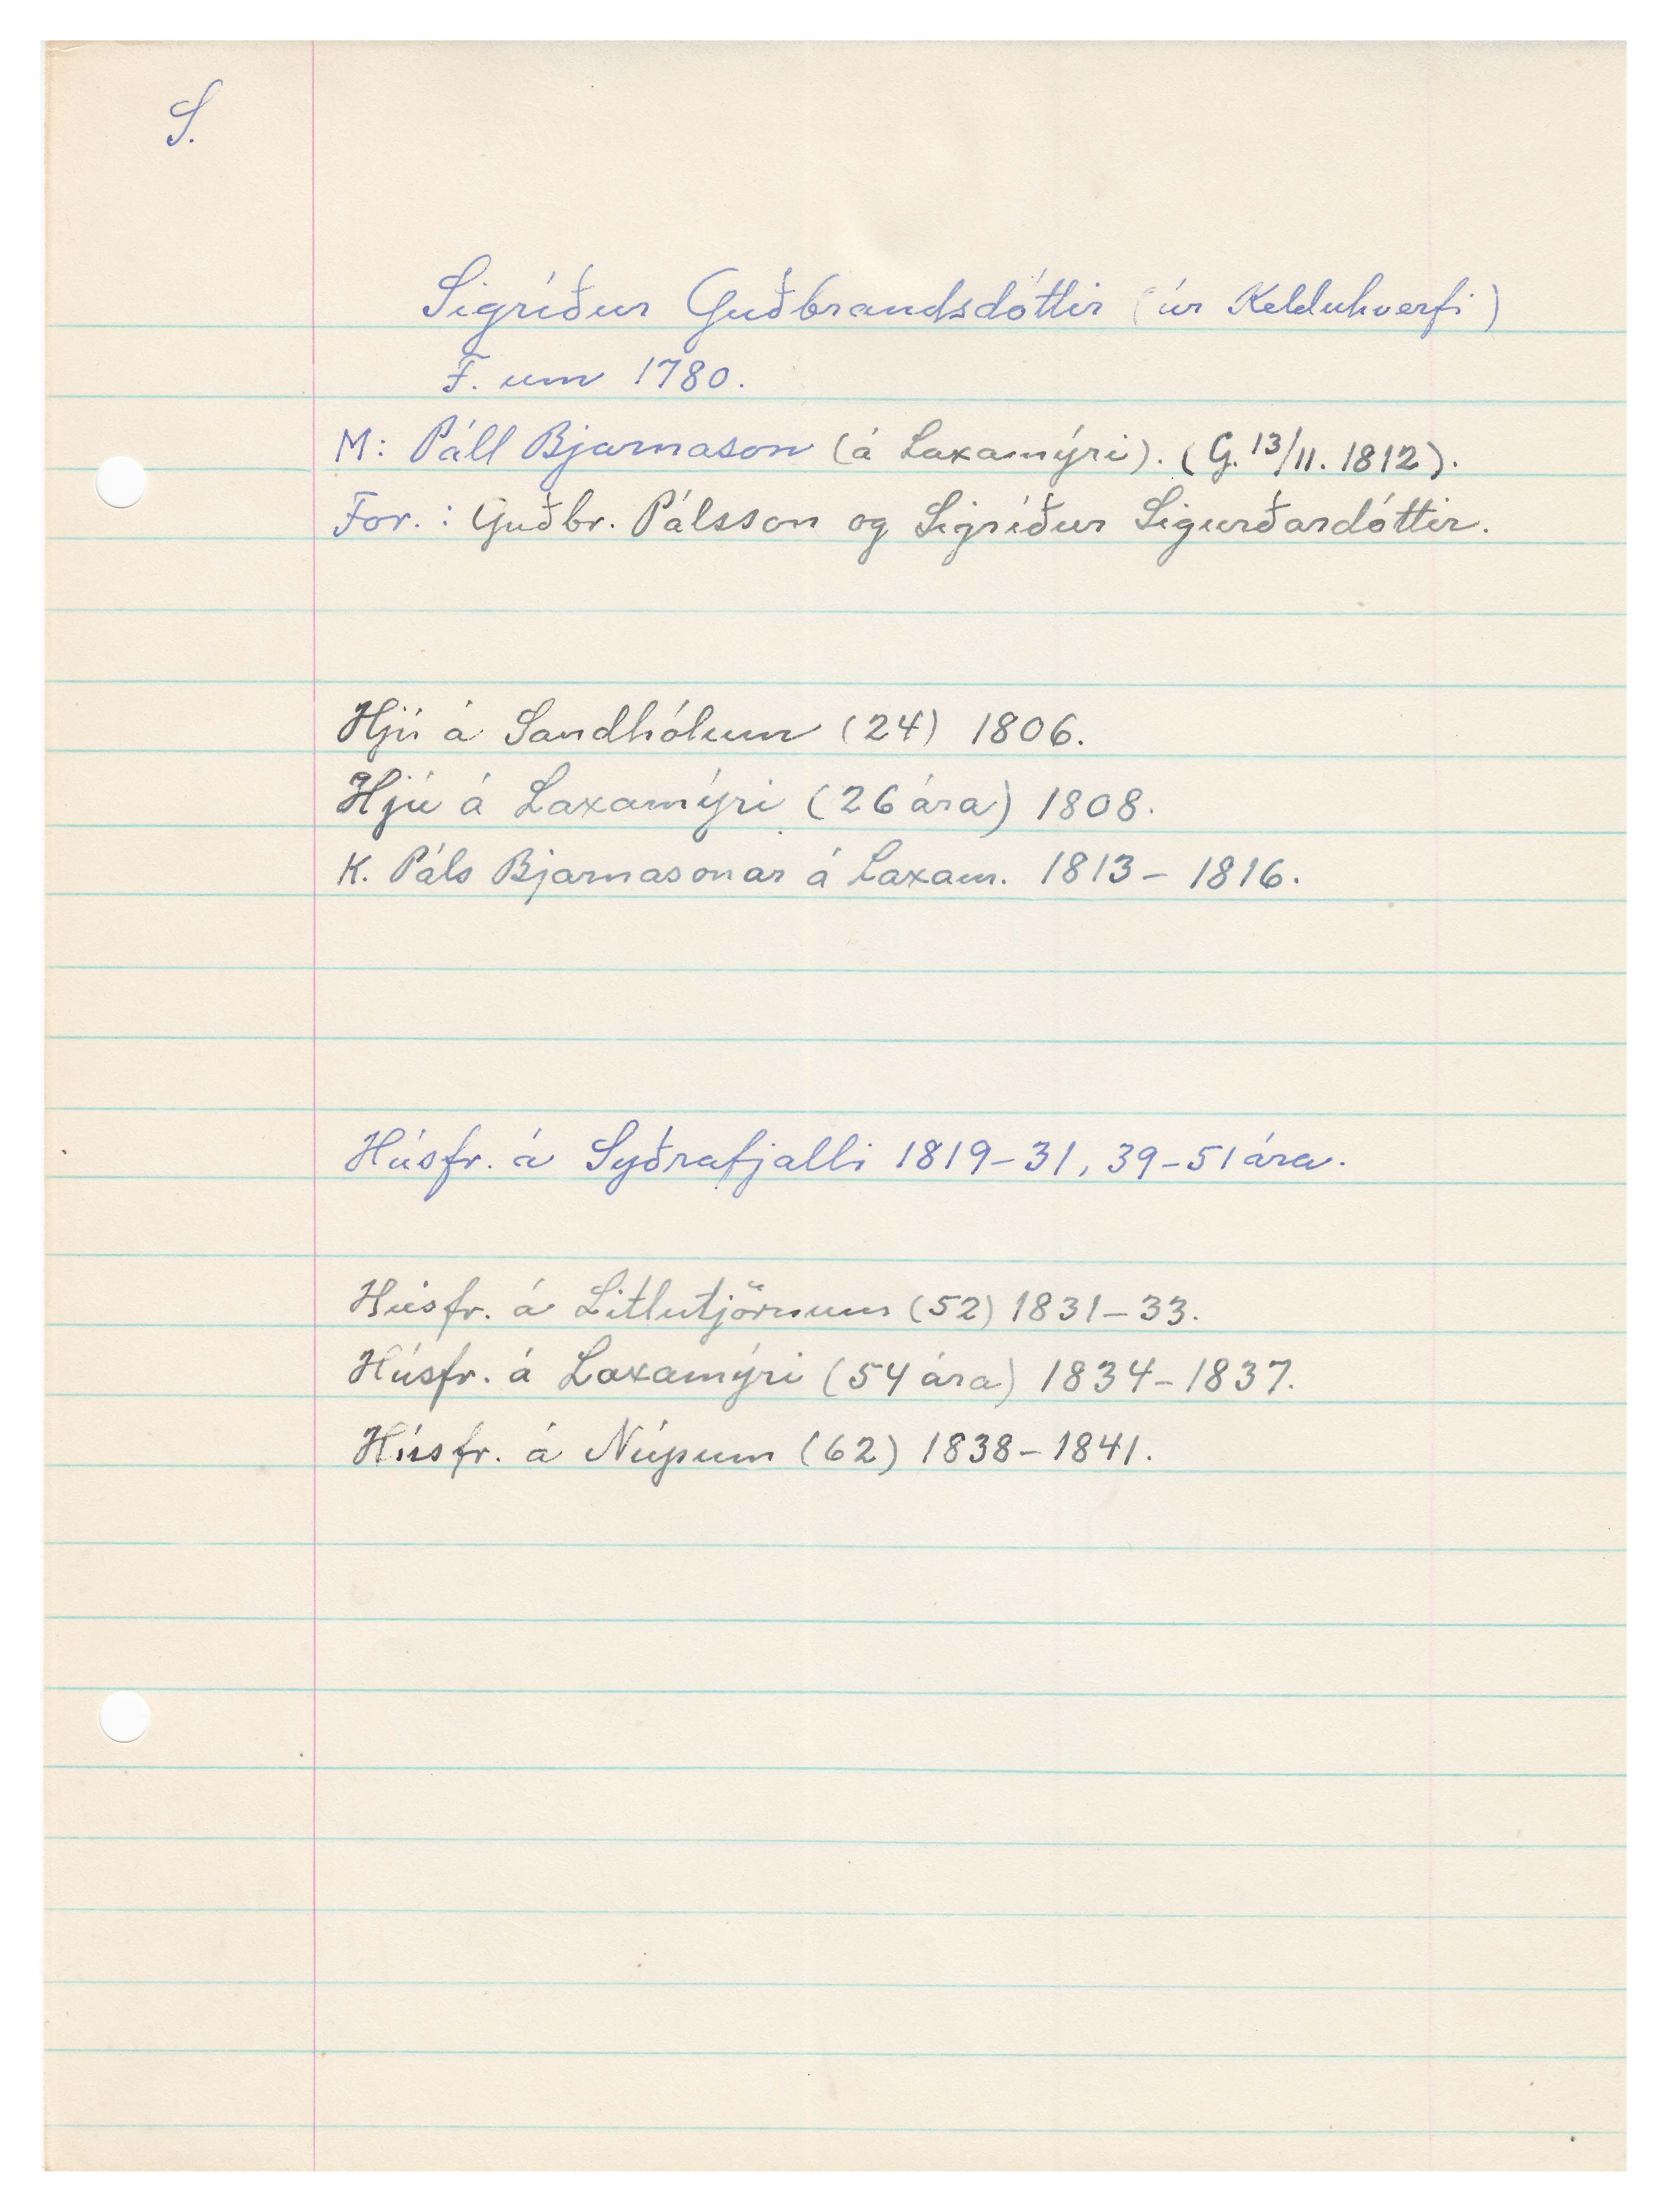 S.
Sigríður Guðbrandsdóttir (úr Kelduhverfi)
F. um 1780.
M: Páll Bjarnason (á Laxamýri). (G. 13/11. 1812).
For.: Guðbr. Pálsson og Sigríður Sigurðardóttir.
Hjú á Sandhólum (24) 1806.
Hjú á Laxamýri (26 ára) 1808.
K. Páls Bjarnasonar á Laxam. 1813 - 1816.
Húsfr. á Syðrafjalli 1819-31, 39-51 ára.
Húsfr. á Litlutjörnum (52) 1831-33.
Húsfr. á Laxamýri (54 ára) 1834-1837.
Húsfr. á Núpum (62) 1838-1841.